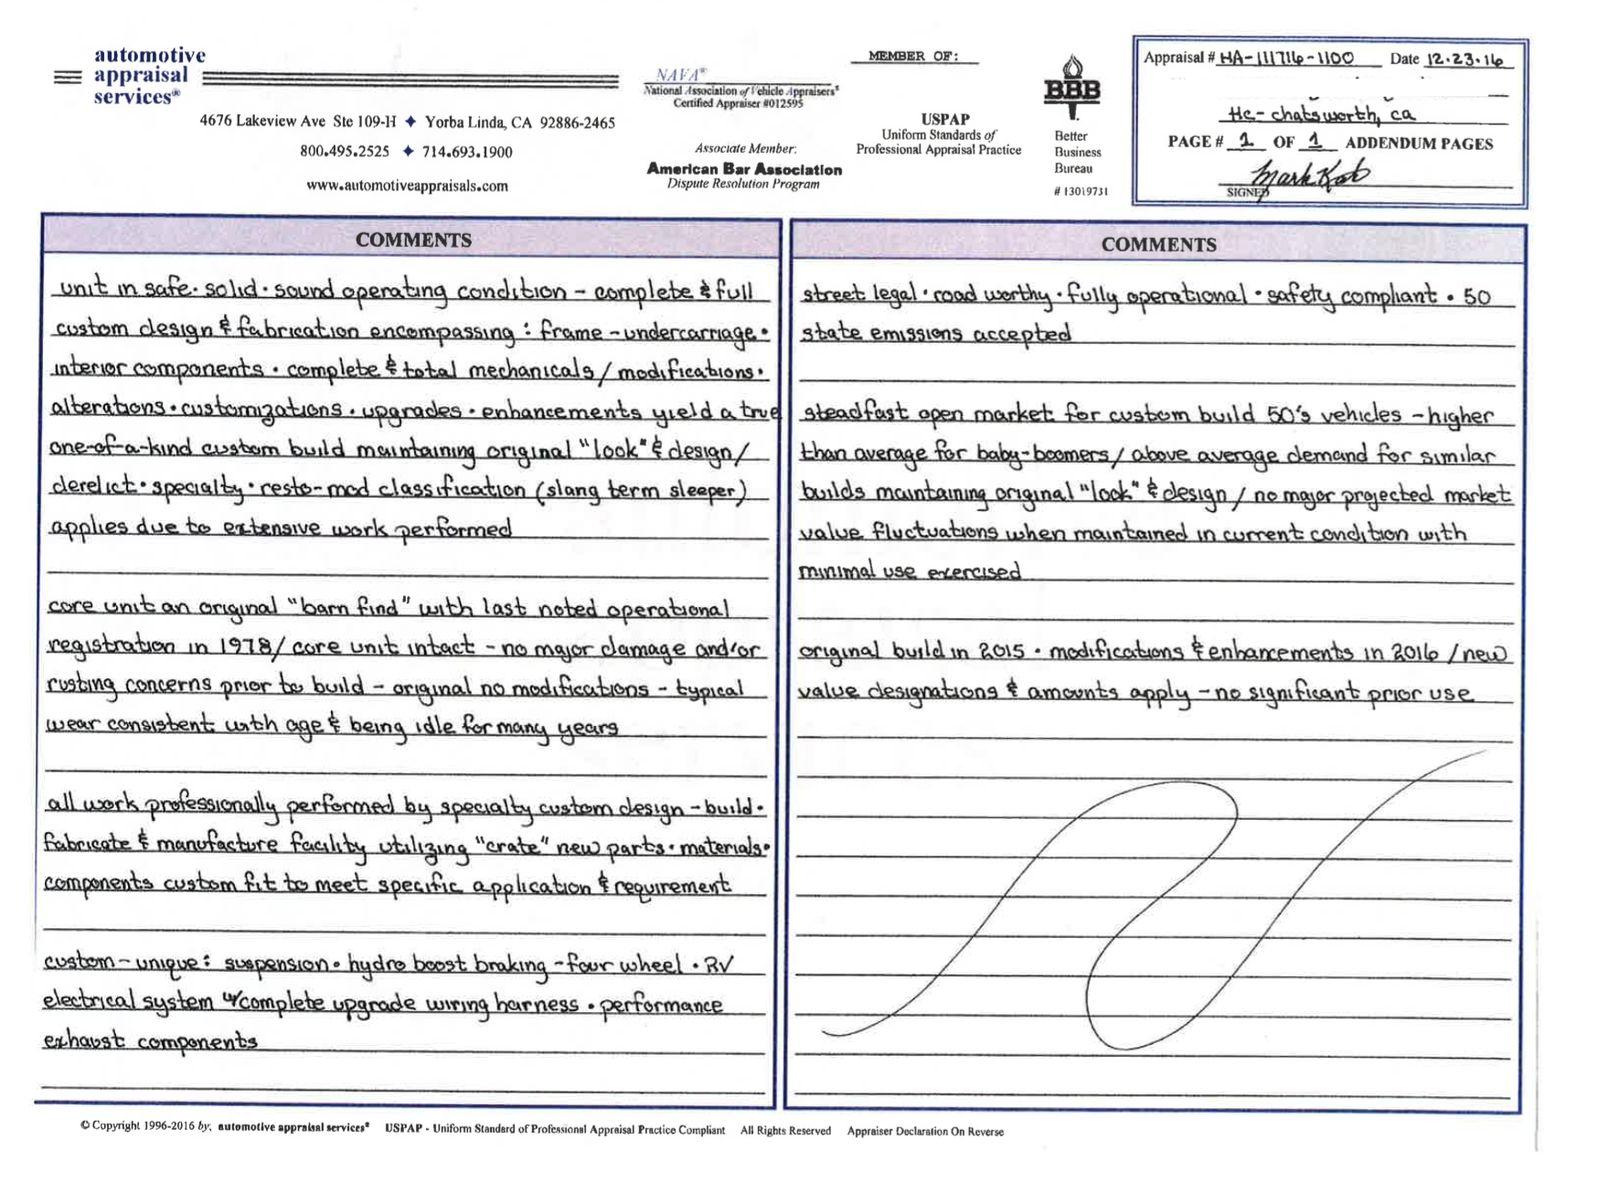 automotive
appraisal
services®
4676 Lakeview Ave Ste 109-H ✦ Yorba Linda, CA 92886-2465
800.495.2525 ✦ 714.693.1900
www.automotiveappraisals.com
NAVA®
National Association of Vehicle Appraisers®
Certified Appraiser #012595
Associate Member:
American Bar Association
Dispute Resolution Program
MEMBER OF:
USPAP
Uniform Standards of
Professional Appraisal Practice
BBB
Better
Business
Bureau
# 13019731
Appraisal # HA-111716-1100 Date 12.23.16
HC- chatsworth, ca
PAGE # 1 OF 1 ADDENDUM PAGES
SIGNED Mark
COMMENTS
unit in safe · solid · sound operating condition - complete & full
custom design & fabrication encompassing : frame - undercarriage ·
interior components · complete & total mechanicals / modifications ·
alterations · customizations · upgrades · enhancements yield a true
one-of-a-kind custom build maintaining original "look" & design /
derelict · specialty · resto-mod classification (slang term sleeper)
applies due to extensive work performed
core unit an original "barn find" with last noted operational
registration in 1978 / core unit intact - no major damage and/or
rusting concerns prior to build - original no modifications - typical
wear consistent with age & being idle for many years
all work professionally performed by specialty custom design - build ·
fabricate & manufacture facility utilizing "crate" new parts · materials ·
components custom fit to meet specific application & requirement
custom - unique : suspension · hydro boost braking - four wheel · RV
electrical system w/complete upgrade wiring harness · performance
exhaust components
COMMENTS
street legal · road worthy · fully operational · safety compliant · 50
state emissions accepted
steadfast open market for custom build 50's vehicles - higher
than average for baby-boomers / above average demand for similar
builds maintaining original "look" & design / no major projected market
value fluctuations when maintained in current condition with
minimal use exercised
original build in 2015 · modifications & enhancements in 2016 / new
value designations & amounts apply - no significant prior use
© Copyright 1996-2016 by, automotive appraisal services® USPAP - Uniform Standard of Professional Appraisal Practice Compliant All Rights Reserved Appraiser Declaration On Reverse